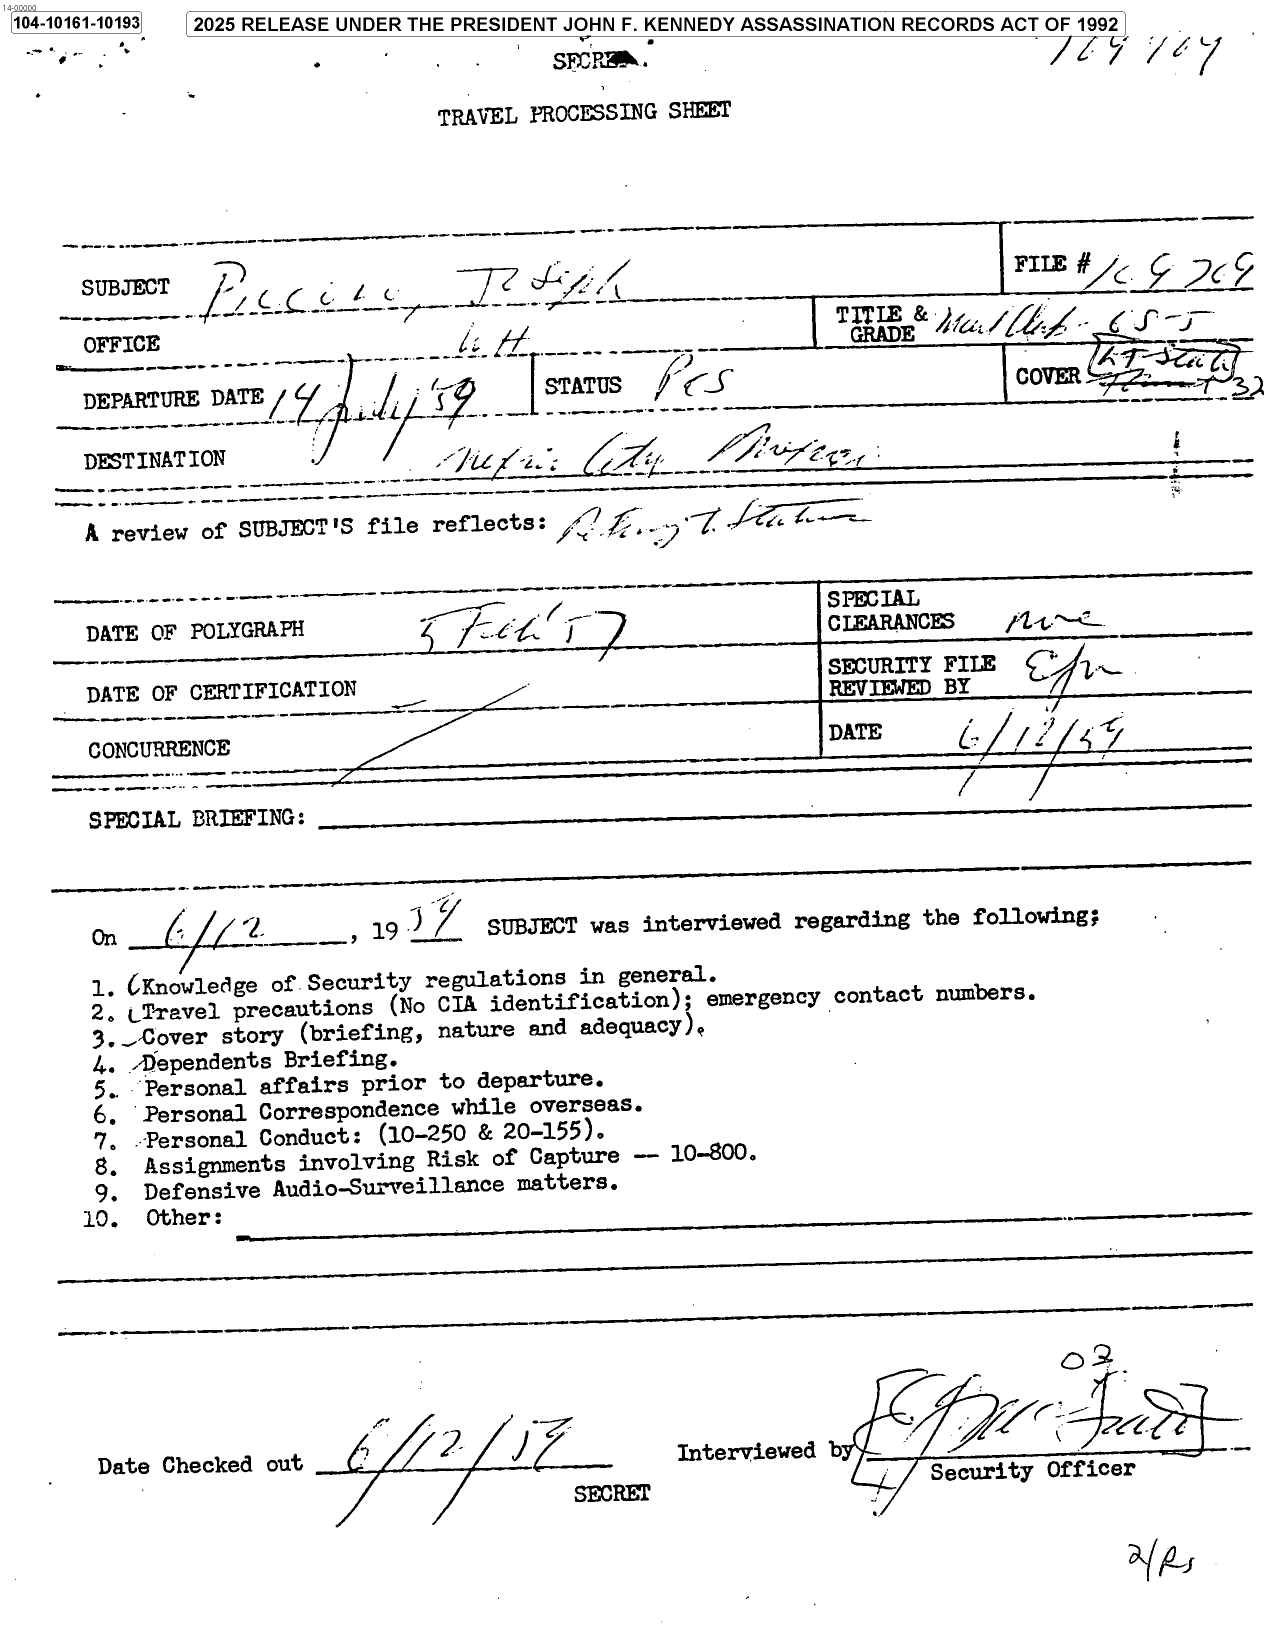 14-00000
104-10161-10193
2025 RELEASE UNDER THE PRESIDENT JOHN F. KENNEDY ASSASSINATION RECORDS ACT OF 1992
SECRE
TRAVEL PROCESSING SHEET
SUBJECT Piccolo, Joseph
FILE # 169709
OFFICE WH
TITLE & GRADE GS-5
DEPARTURE DATE 14 July '59
STATUS PCS
COVER
DESTINATION Mexico City Mexico
A review of SUBJECT'S file reflects:
DATE OF POLYGRAPH 5 Feb '57
SPECIAL CLEARANCES none
DATE OF CERTIFICATION
SECURITY FILE REVIEWED BY
CONCURRENCE
DATE 6/12/59
SPECIAL BRIEFING:
On 6/12, 1959 SUBJECT was interviewed regarding the following;
1. Knowledge of Security regulations in general.
2. Travel precautions (No CIA identification); emergency contact numbers.
3. Cover story (briefing, nature and adequacy).
4. Dependents Briefing.
5. Personal affairs prior to departure.
6. Personal Correspondence while overseas.
7. Personal Conduct: (10-250 & 20-155).
8. Assignments involving Risk of Capture -- 10-800.
9. Defensive Audio-Surveillance matters.
10. Other:
03
Date Checked out 6/12/59
Interviewed by
Security Officer
SECRET
2/Rs